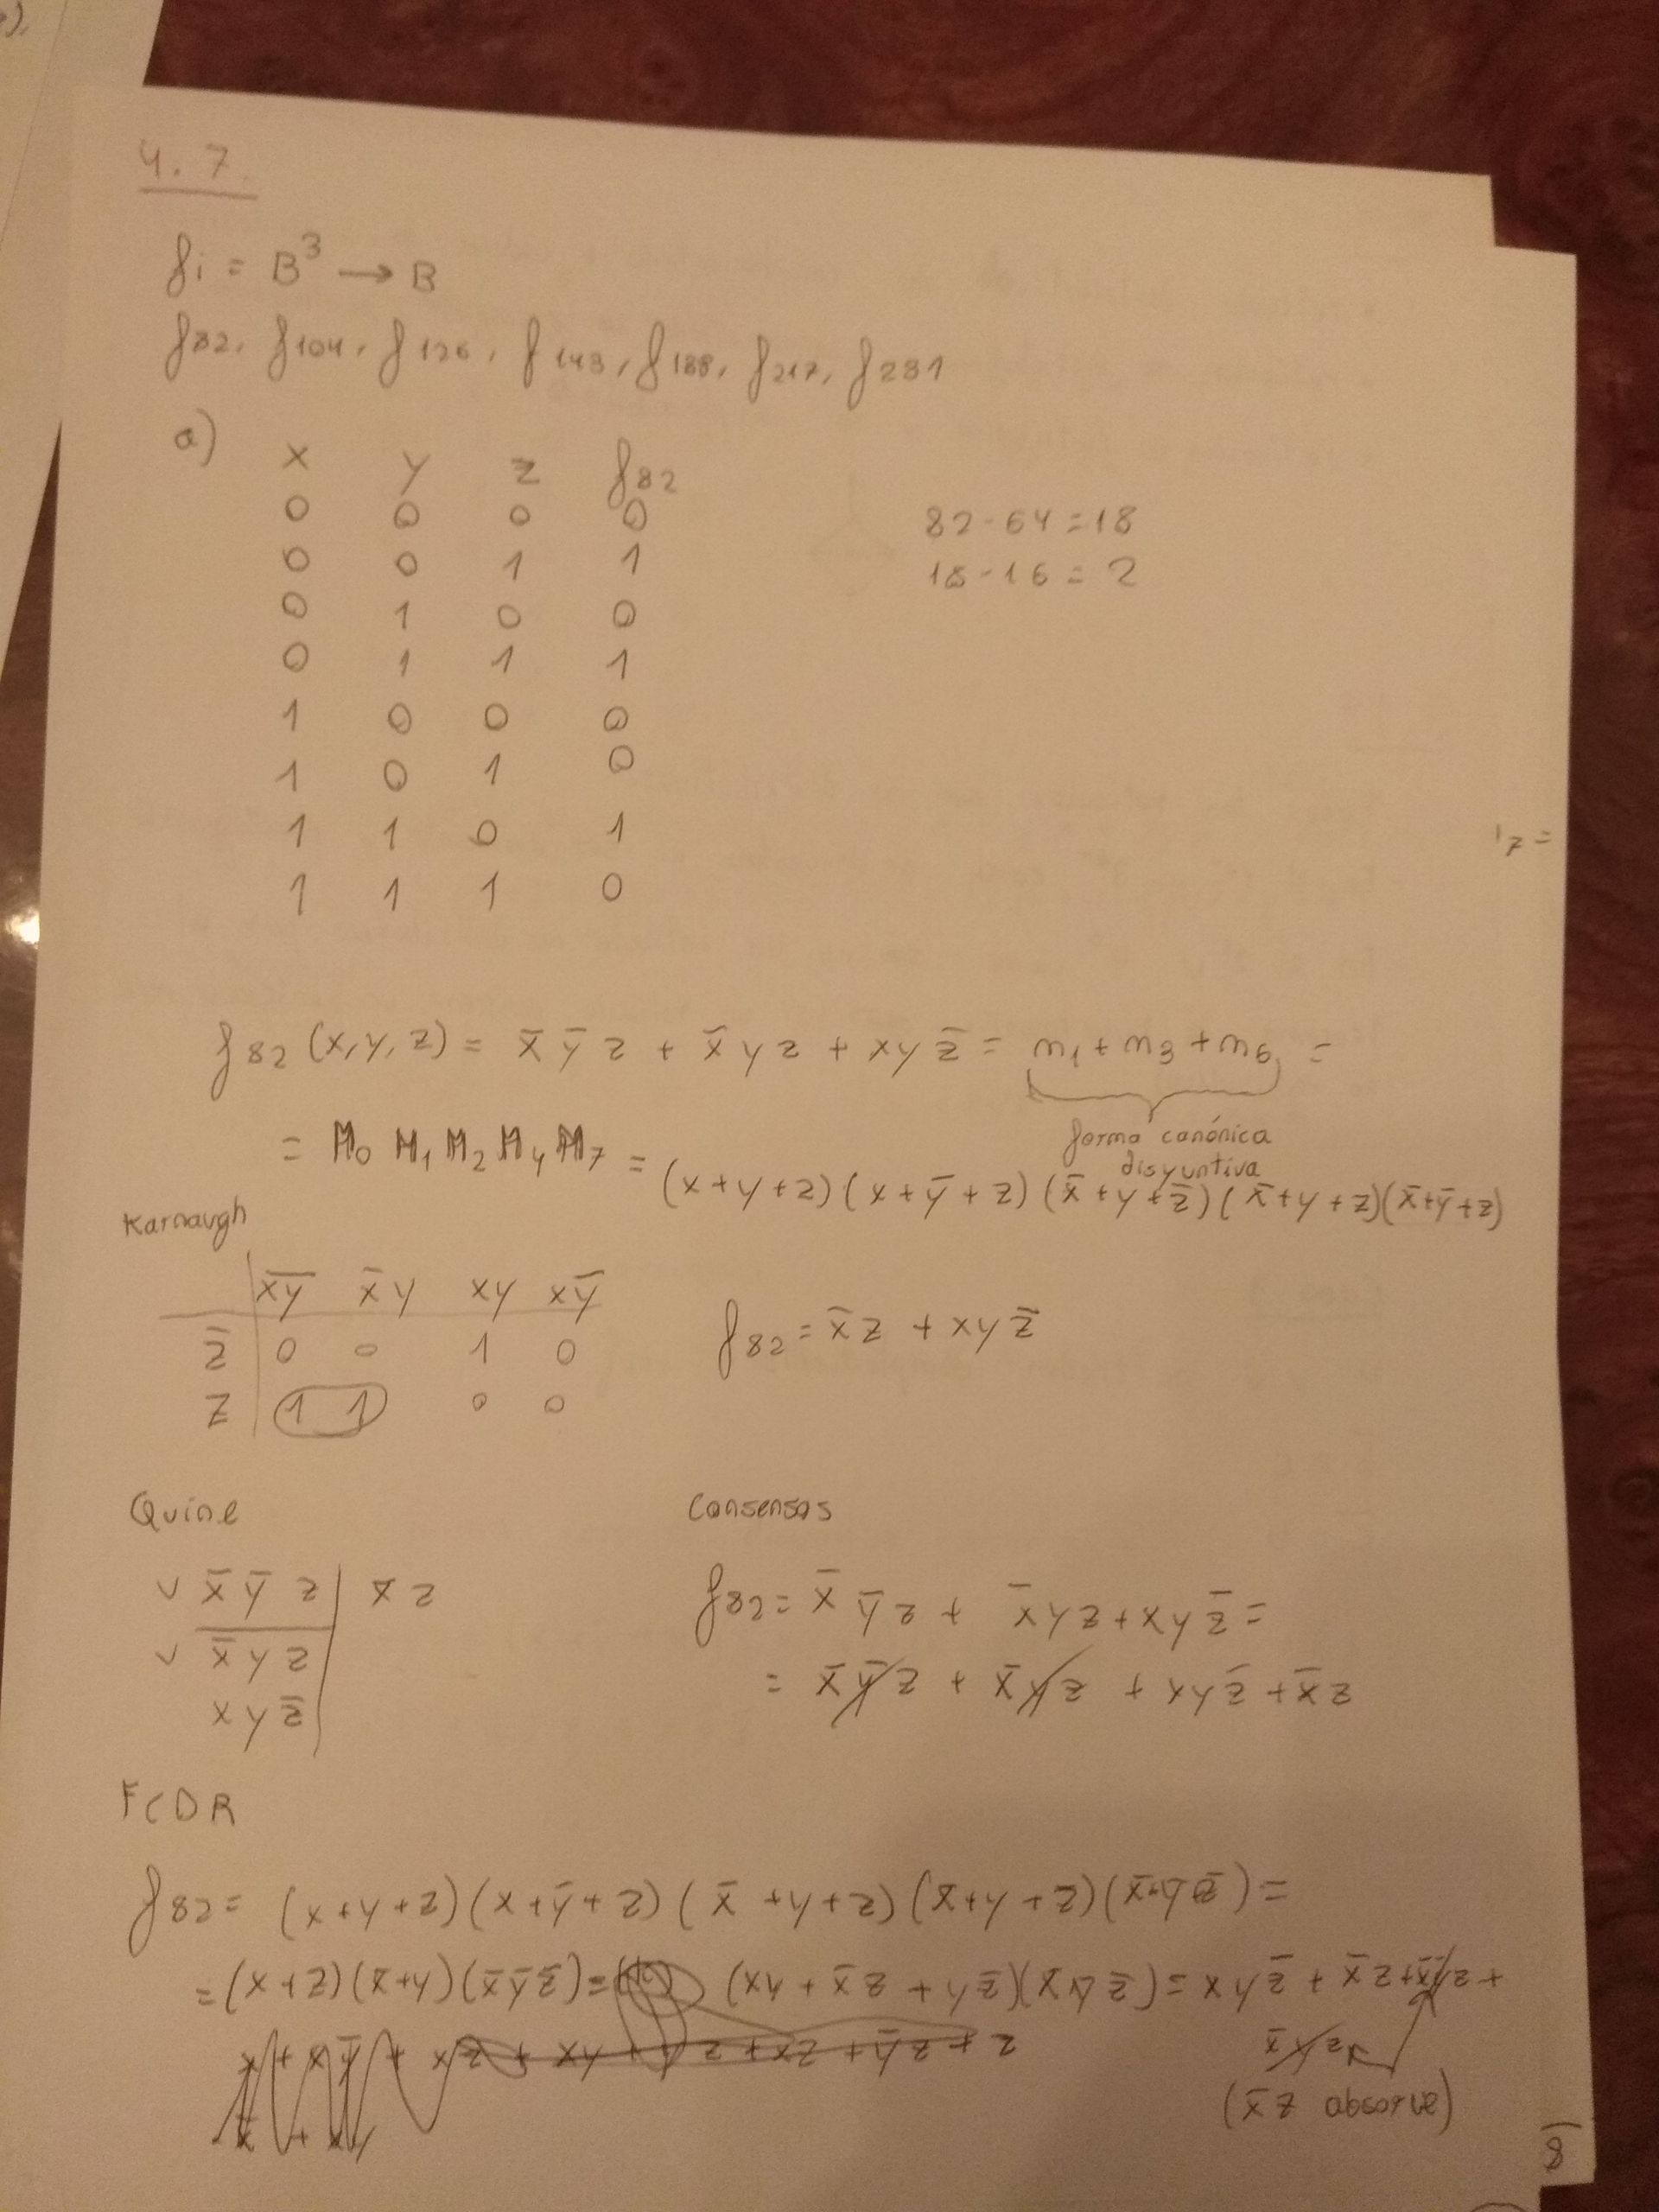 4.7.
fi = B³ → B
f82, f104, f126, f143, f188, f217, f231
a) x y z f82
0 0 0 0
0 0 1 1
0 1 0 0
0 1 1 1
1 0 0 0
1 0 1 0
1 1 0 1
1 1 1 0
82-64=18
18-16=2
17=
f82 (x,y,z) = x̄ ȳ z + x̄ y z + x y z̄ = m1 + m3 + m6 =
forma canónica
disyuntiva
= M0 M1 M2 M4 M7 = (x+y+z)(x+ȳ+z)(x̄+y+z̄)(x̄+y+z)(x̄+ȳ+z)
Karnaugh
x̄ȳ x̄y xy xȳ
z̄ 0 0 1 0
z 1 1 0 0
f82 = x̄z + xyz̄
Quine
v x̄ ȳ z | x̄ z
v x̄ y z
x y z̄
Consensos
f82 = x̄ ȳ z + x̄ y z + x y z̄ =
= x̄ȳz + x̄yz + xyz̄ + x̄z
FCDR
f82 = (x+y+z)(x+ȳ+z)(x̄+y+z)(x̄+y+z̄)(x̄+ȳ+z̄) =
= (x+z)(x̄+y)(x̄ȳz̄) = (xy + x̄z + yz)(x̄ȳz̄) = xyz̄ + x̄z + x̄yz +
x̄yz
(x̄z absorve)
8